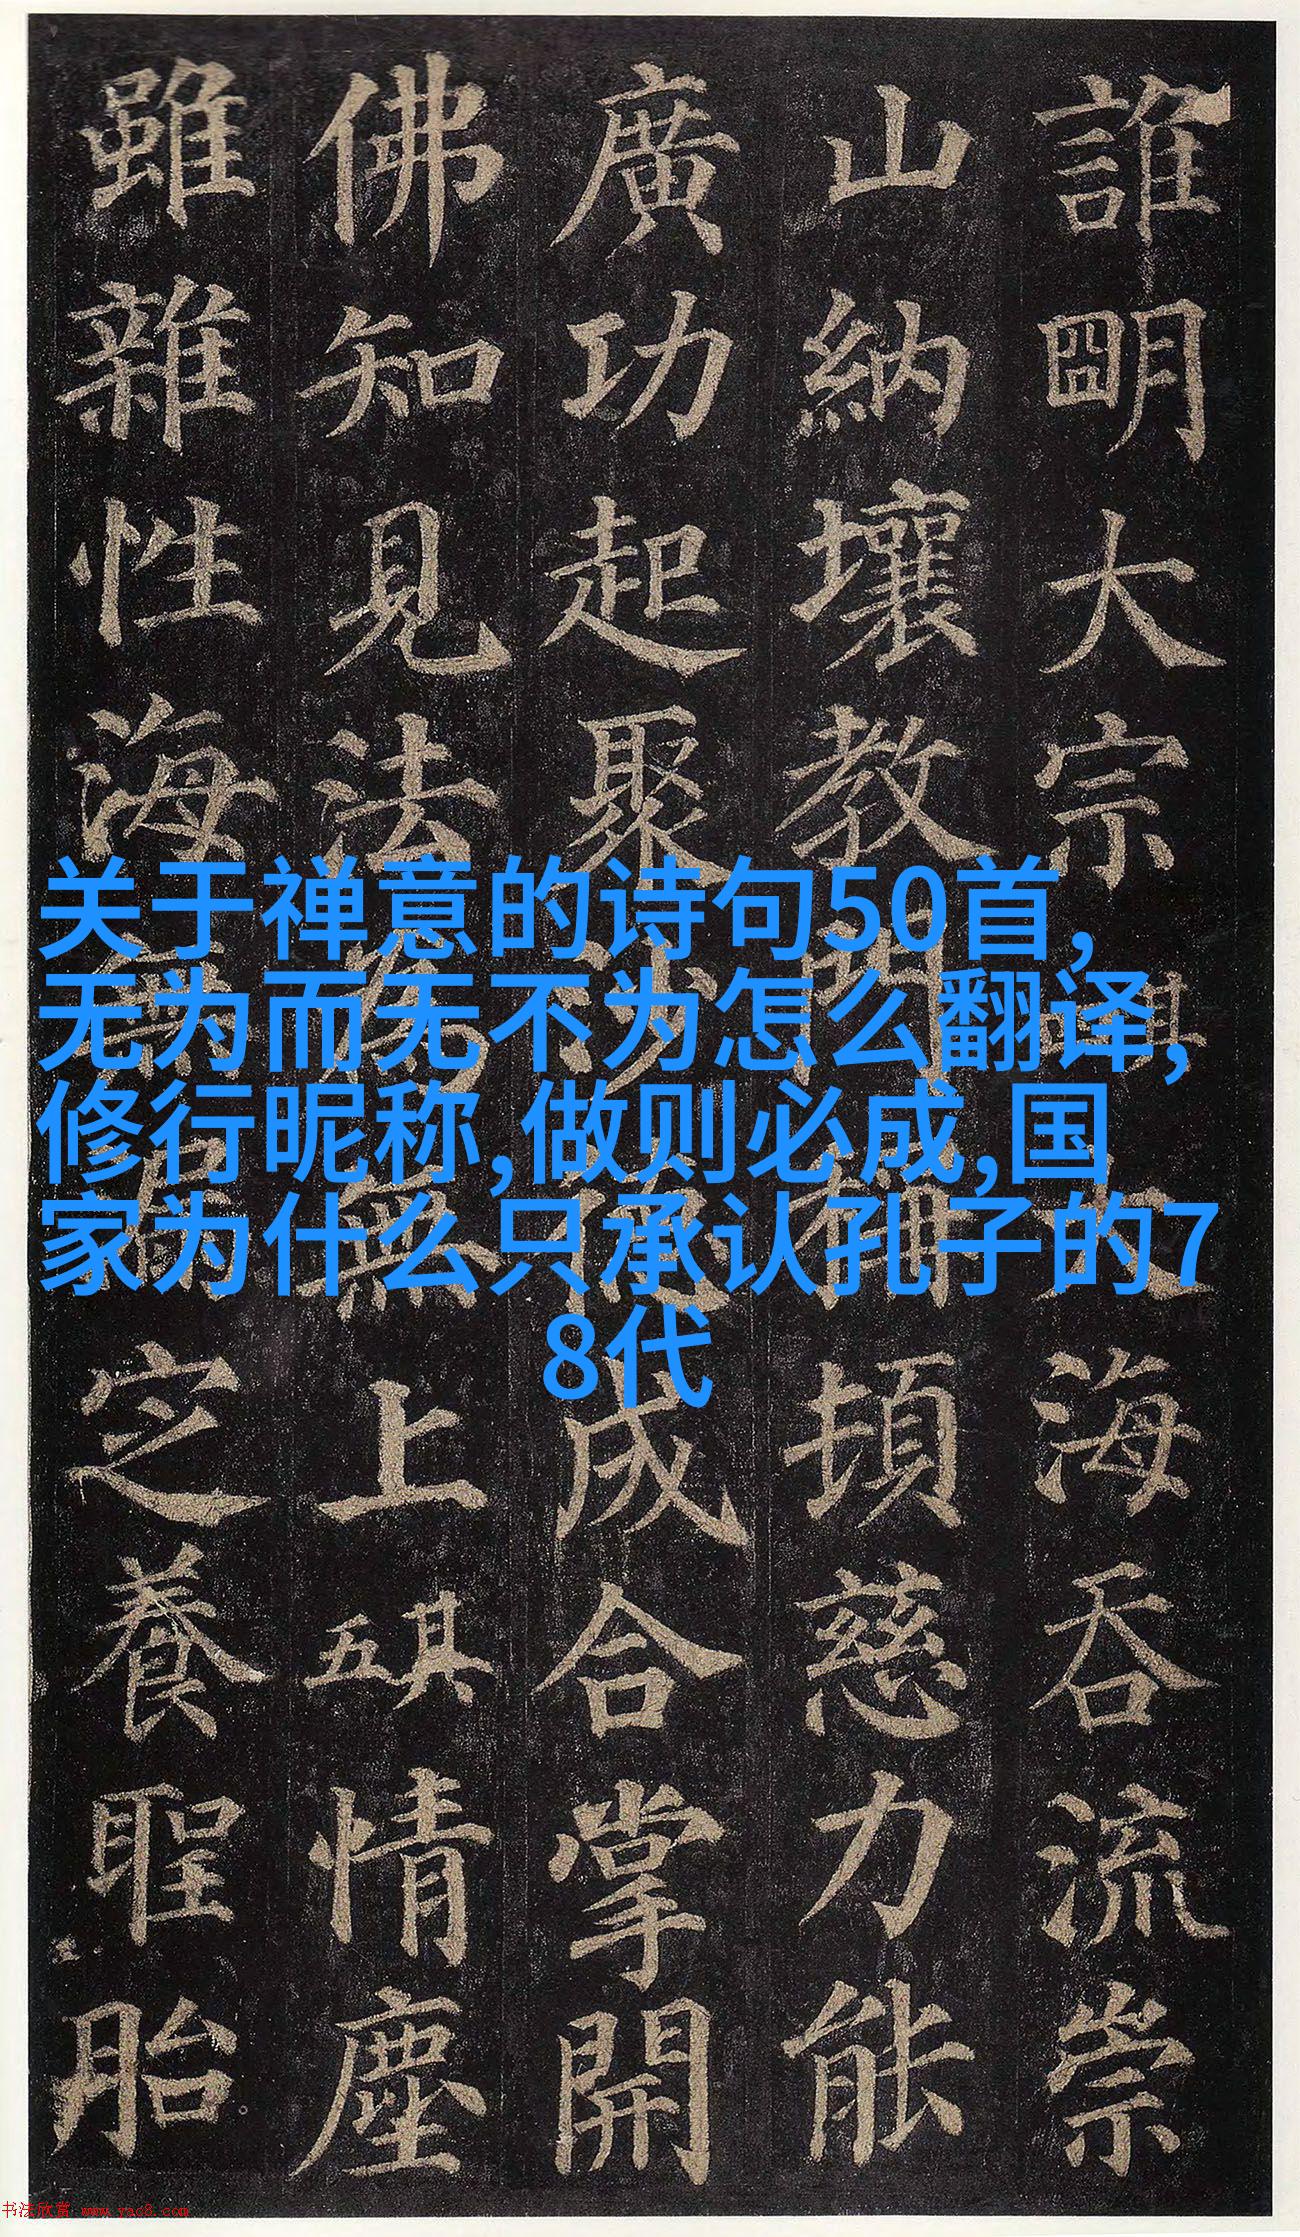 誰明大宗大海吞流崇
山納壤教門稱頓慈力能
廣功起聚沙德成合掌開
佛知見法為無上其五情塵
雖雜性海無漏定養聖胎
关于禅意的诗句50首,
无为而无不为怎么翻译,
修行昵称,做则必成,国
家为什么只承认孔子的7
8代
书法欣赏 www.yac8.com